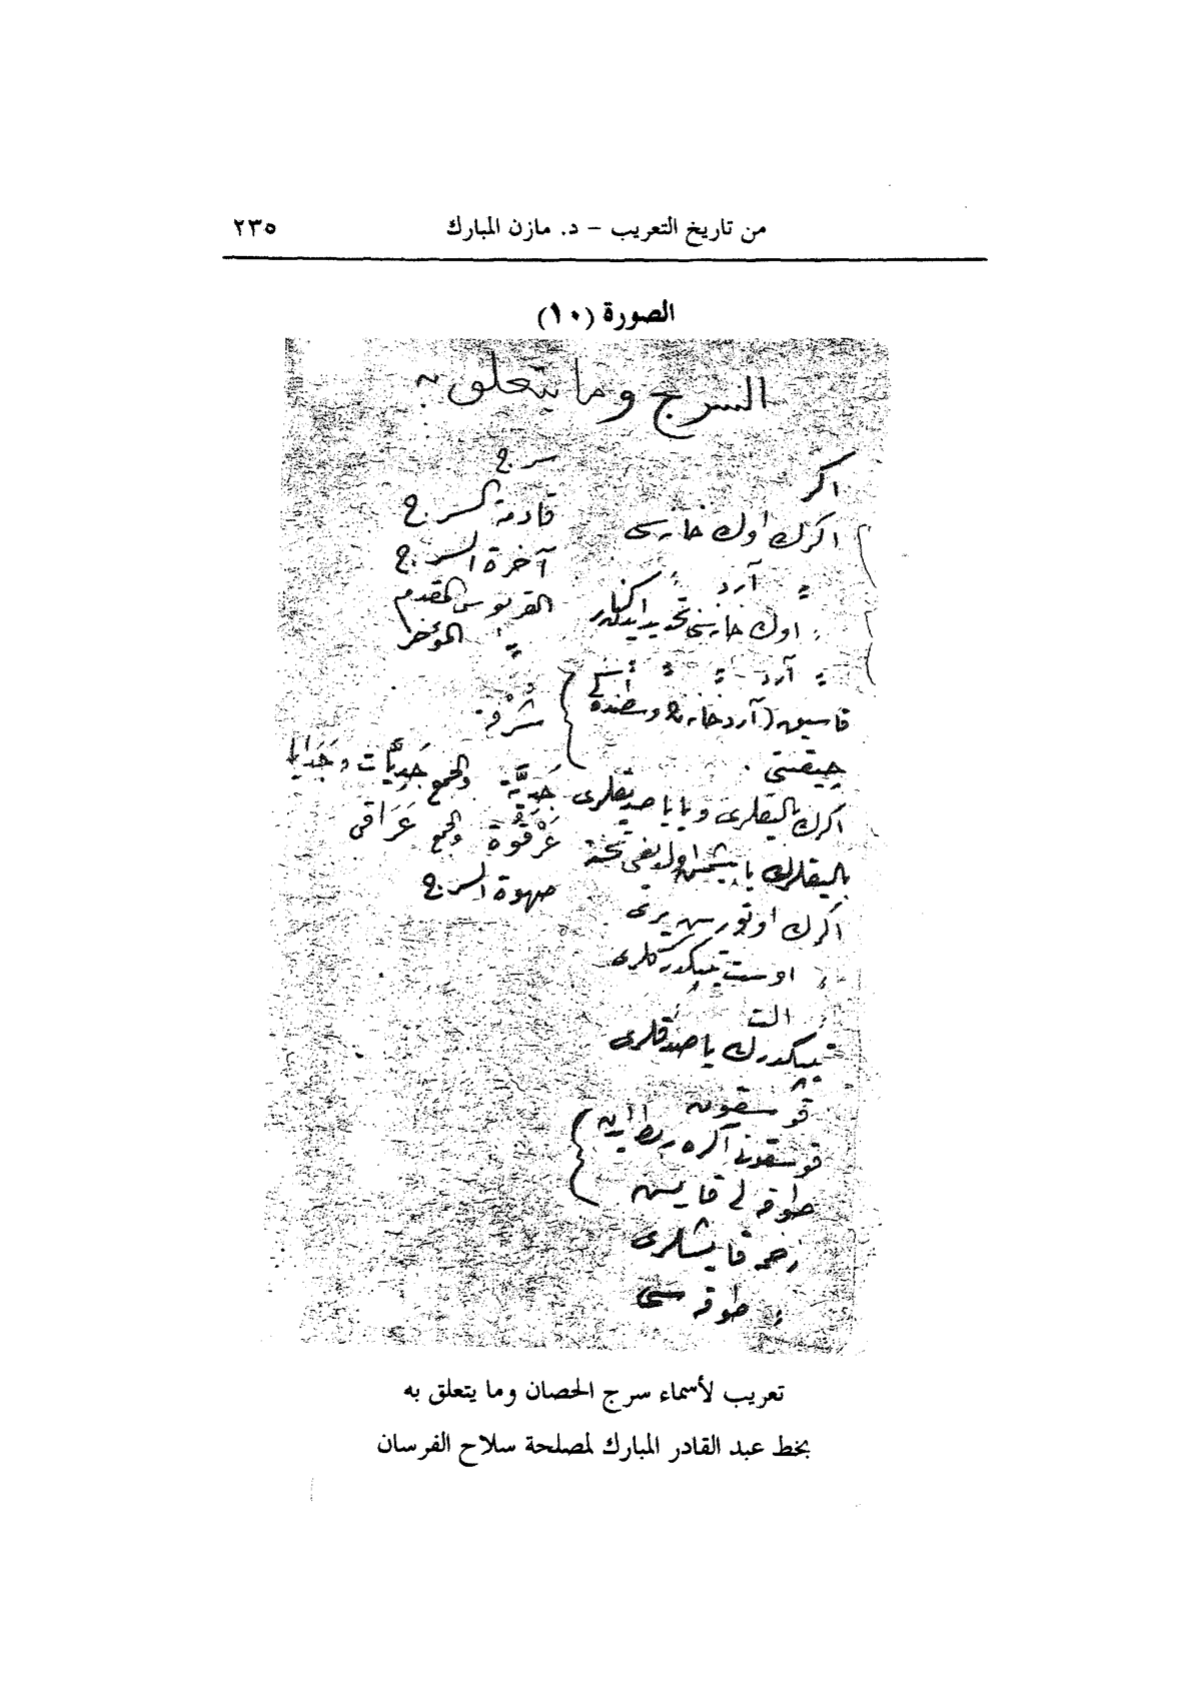 من تاريخ التعريب – د. مازن المبارك ٢٣٥
الصورة (١٠)
السرج وما يتعلق به
اكر سرج
اكرك اوك خانه سى قادمة السرج
〃 آرد 〃 آخرة السرج
〃 اوك خانه سنى تحديد ايدن القربوس المقدم
〃 آرد 〃 〃 〃 〃 المؤخر
قاسيق (آرد خانه نك وسطنده كى
چيقنتى شُرْفة
اكرك باليقلرى ويا ياصديقلرى جَدِيَّة والجمع جَدِيَّات وجَدَايا
باليقلرك ياپيشمش اولديغى تخته عَرْقُوَة والجمع عَرَاقي
اكرك اوتوره جق يرى صهوة السرج
〃 اوست تپكدركلرى
〃 الت
تپكدرك ياصدقلرى
قوسقون
قوسقونى اكره ربط ايدن
طوقه لى قايش
زخمه قايشلرى
〃 طوقه سى
تعريب لأسماء سرج الحصان وما يتعلق به
بخط عبد القادر المبارك لمصلحة سلاح الفرسان